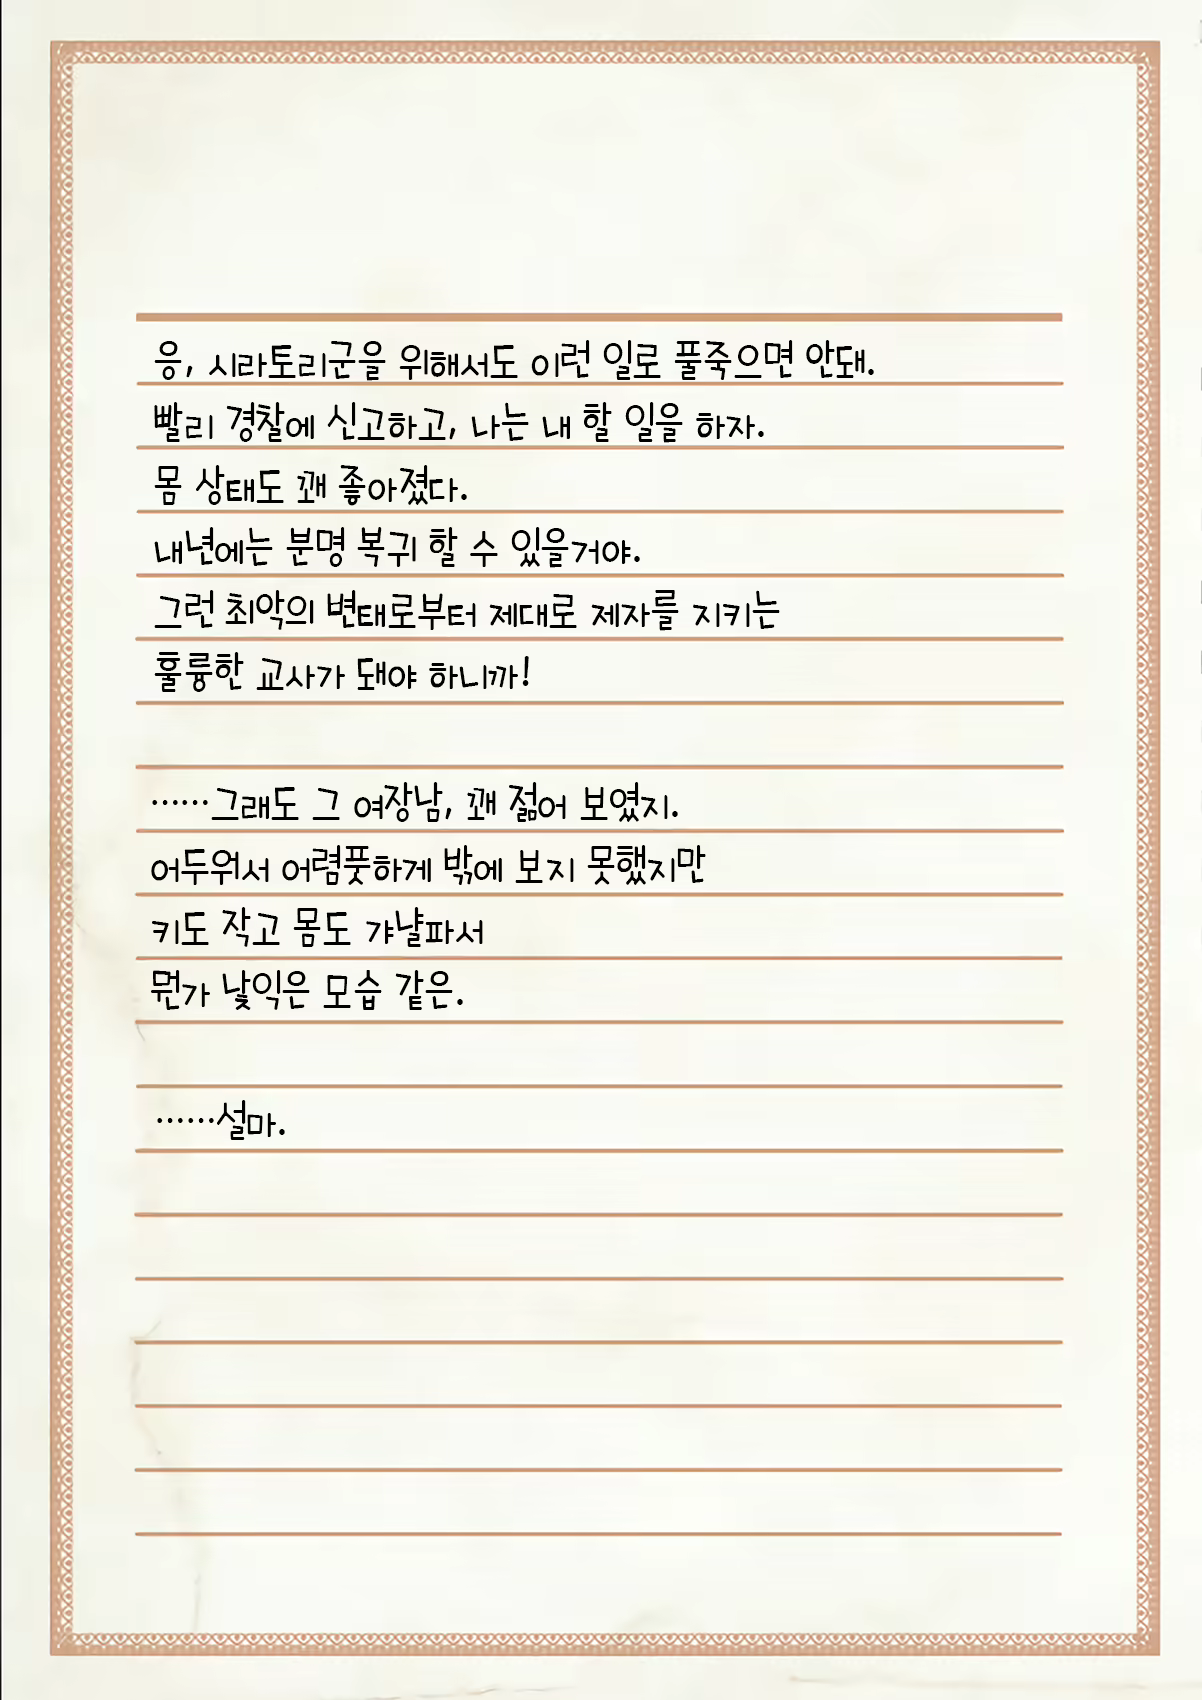 응, 시라토리군을 위해서도 이런 일로 풀죽으면 안돼.
빨리 경찰에 신고하고, 나는 내 할 일을 하자.
몸 상태도 꽤 좋아졌다.
내년에는 분명 복귀 할 수 있을거야.
그런 최악의 변태로부터 제대로 제자를 지키는
훌륭한 교사가 돼야 하니까!
……그래도 그 여장남, 꽤 젊어 보였지.
어두워서 어렴풋하게 밖에 보지 못했지만
키도 작고 몸도 갸냘파서
뭔가 낯익은 모습 같은.
……설마.